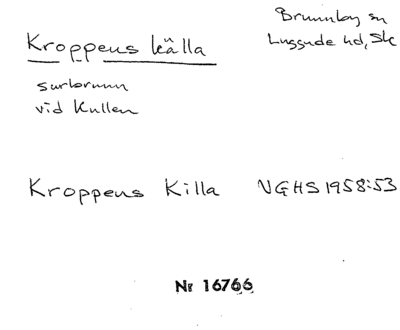 Kroppens källa
Brunnby sn
Luggude hd, Sk
surbrunn
vid Kullen
Kroppens Killa VGHS 1958:53
Nr 16766